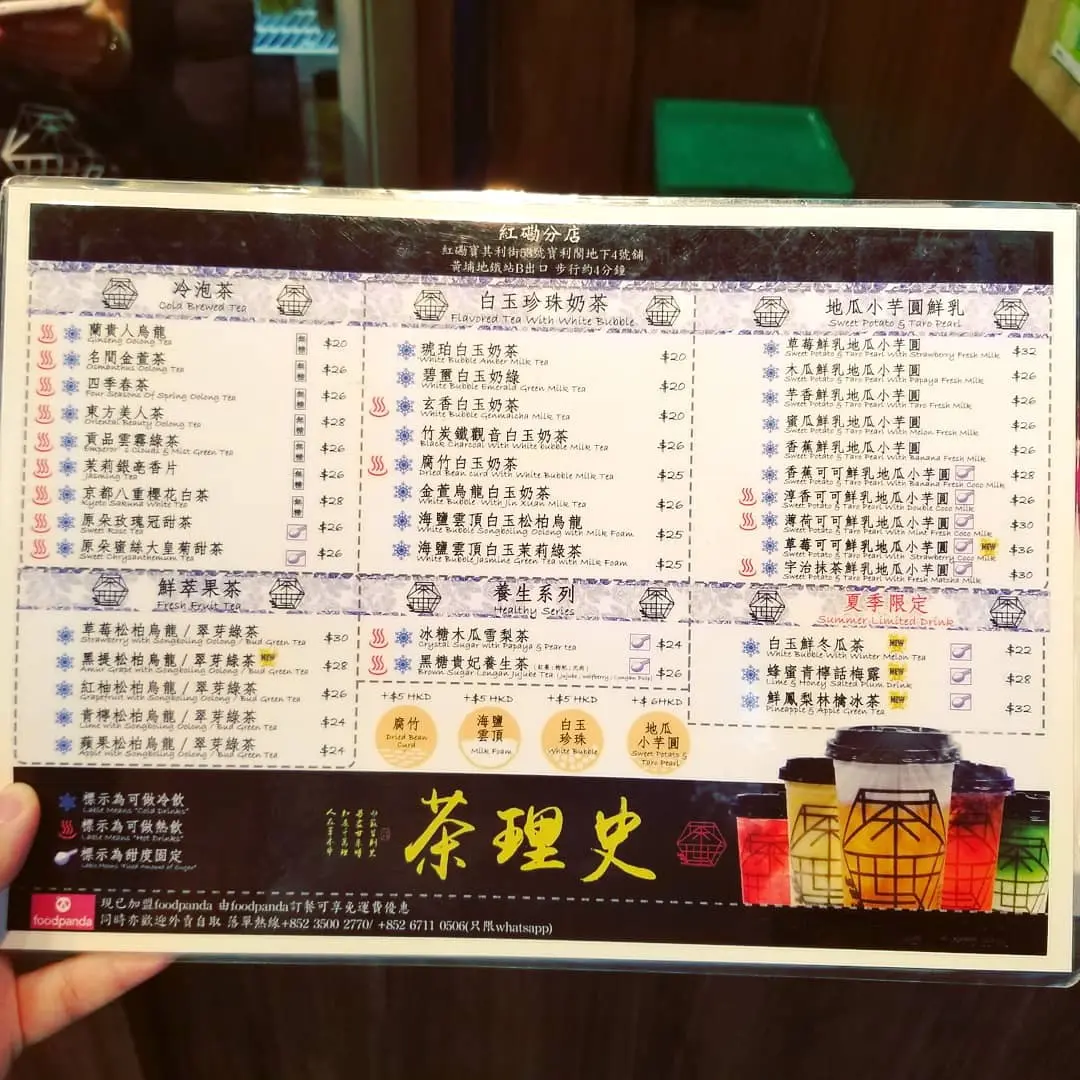 紅磡分店
紅磡寶其利街58號寶利閣地下4號舖
黃埔地鐵站B出口 步行約4分鐘
冷泡茶
Cold Brewed Tea
蘭貴人烏龍 無糖 $20
Ginseng Oolong Tea
名間金萱茶 無糖 $26
Osmanthus Oolong Tea
四季春茶 無糖 $26
Four Seasons Of Spring Oolong Tea
東方美人茶 無糖 $28
Oriental Beauty Oolong Tea
貢品雲霧綠茶 無糖 $26
Emperor's Clouds & Mist Green Tea
茉莉銀毫香片 無糖 $26
Jasming Tea
京都八重櫻花白茶 無糖 $28
Kyoto Sakuna White Tea
原朵玫瑰冠甜茶 $26
Sweet Rose Tea
原朵蜜絲大皇菊甜茶 $26
Sweet Chrysanthemum Tea
白玉珍珠奶茶
Flavored Tea With White Bubble
琥珀白玉奶茶 $20
White Bubble Amber Milk Tea
碧璽白玉奶綠 $20
White Bubble Emerald Green Milk Tea
玄香白玉奶茶 $20
White Bubble Genmaicha Milk Tea
竹炭鐵觀音白玉奶茶 $26
Black Charcoal With White bubble Milk Tea
腐竹白玉奶茶 $25
Dried Bean curd With White Bubble Milk Tea
金萱烏龍白玉奶茶 $26
White Bubble With Jin Xuan Milk Tea
海鹽雲頂白玉松柏烏龍 $25
White Bubble Songboling Oolong with Milk Foam
海鹽雲頂白玉茉莉綠茶 $25
White Bubble Jasmine Green Tea with Milk Foam
地瓜小芋圓鮮乳
Sweet Potato & Taro Pearl
草莓鮮乳地瓜小芋圓 $32
Sweet Potato & Taro Pearl With Strawberry Fresh Milk
木瓜鮮乳地瓜小芋圓 $26
Sweet Potato & Taro Pearl With Papaya Fresh Milk
芋香鮮乳地瓜小芋圓 $26
Sweet Potato & Taro Pearl With Taro Fresh Milk
蜜瓜鮮乳地瓜小芋圓 $26
Sweet Potato & Taro Pearl With Melon Fresh Milk
香蕉鮮乳地瓜小芋圓 $26
Sweet Potato & Taro Pearl With Banana Fresh Milk
香蕉可可鮮乳地瓜小芋圓 $28
Sweet Potato & Taro Pearl With Banana Fresh Coco Milk
淳香可可鮮乳地瓜小芋圓 $26
Sweet Potato & Taro Pearl With Double Coco Milk
薄荷可可鮮乳地瓜小芋圓 $30
Sweet Potato & Taro Pearl With Mint Fresh Coco Milk
草莓可可鮮乳地瓜小芋圓 NEW $36
Sweet Potato & Taro Pearl With Strawberry Coco Milk
宇治抹茶鮮乳地瓜小芋圓 $30
Sweet Potato & Taro Pearl With Fresh Matcha Milk
鮮萃果茶
Fresh Fruit Tea
草莓松柏烏龍 / 翠芽綠茶 $30
Strawberry with Songboling Oolong / Bud Green Tea
黑提松柏烏龍 / 翠芽綠茶 NEW $28
Amur Grape with Songboling Oolong / Bud Green Tea
紅柚松柏烏龍 / 翠芽綠茶 $26
Grapefruit with Songboling Oolong / Bud Green Tea
青檸松柏烏龍 / 翠芽綠茶 $24
Lime with Songboling Oolong / Bud Green Tea
蘋果松柏烏龍 / 翠芽綠茶 $24
Apple with Songboling Oolong / Bud Green Tea
養生系列
Healthy Series
冰糖木瓜雪梨茶 $24
Crystal Sugar with Papaya & Pear tea
黑糖貴妃養生茶 $26
Brown Sugar Longan Jujube Tea
+$5 HKD +$5 HKD +$5 HKD +$6HKD
腐竹
Dried Bean Curd
海鹽雲頂
Milk Foam
白玉珍珠
White Bubble
地瓜小芋圓
Sweet Potato & Taro Pearl
夏季限定
Summer Limited Drink
白玉鮮冬瓜茶 NEW $22
White Bubble With Winter Melon Tea
蜂蜜青檸話梅露 NEW $28
Lime & Honey Salted Plum Drink
鮮鳳梨林檎冰茶 NEW $32
Pineapple & Apple Green Tea
標示為可做冷飲
Lable Means "Cold Drinks"
標示為可做熱飲
Lable Means "Hot Drinks"
標示為甜度固定
茶理史
foodpanda
現已加盟foodpanda 由foodpanda訂餐可享免運費優惠
同時亦歡迎外賣自取 落單熱線+852 3500 2770/ +852 6711 0506(只限whatsapp)